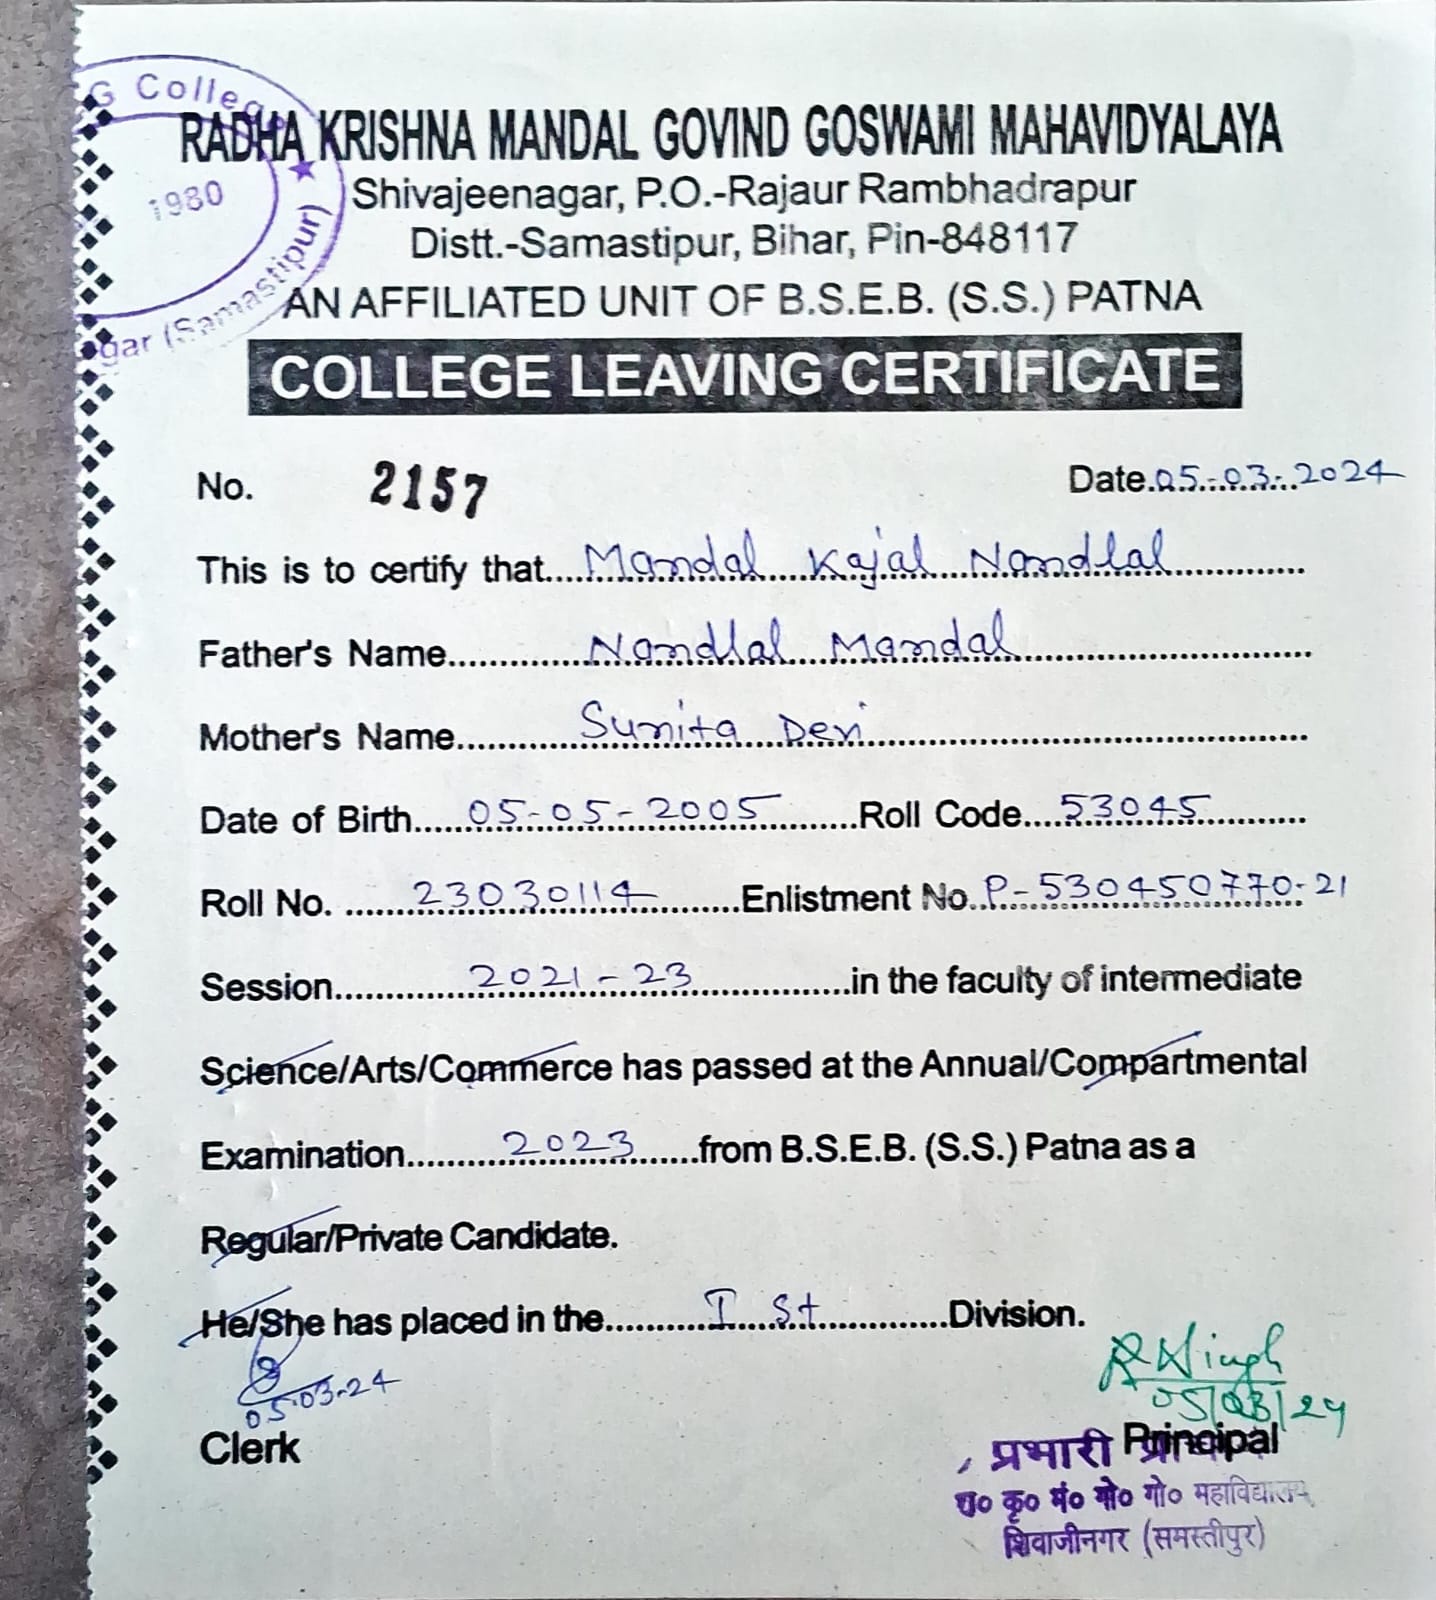 G College
1980
gar (Samastipur)
RADHA KRISHNA MANDAL GOVIND GOSWAMI MAHAVIDYALAYA
Shivajeenagar, P.O.-Rajaur Rambhadrapur
Distt.-Samastipur, Bihar, Pin-848117
AN AFFILIATED UNIT OF B.S.E.B. (S.S.) PATNA
COLLEGE LEAVING CERTIFICATE
No. 2157 Date.05-03-2024
This is to certify that Mandal Kajal Nandlal
Father's Name Nandlal Mandal
Mother's Name Sunita Devi
Date of Birth 05-05-2005 Roll Code 53045
Roll No. 23030114 Enlistment No. P-530450770-21
Session 2021-23 in the faculty of intermediate
Science/Arts/Commerce has passed at the Annual/Compartmental
Examination 2023 from B.S.E.B. (S.S.) Patna as a
Regular/Private Candidate.
He/She has placed in the I st Division.
05-03-24
Clerk
RNSingh
05/03/24
Principal
प्रभारी
रा० कृ० मं० गो० गो० महाविद्यालय
शिवाजीनगर (समस्तीपुर)